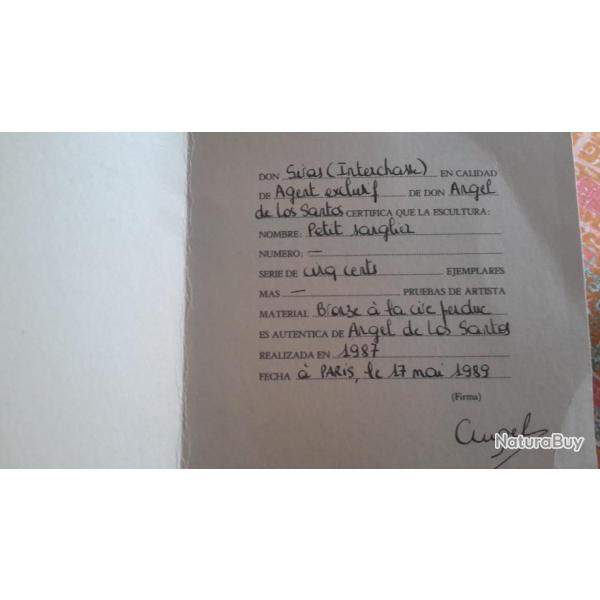 DON Sivas (Interchasse) EN CALIDAD
DE Agent exclusif DE DON Angel
de Los Santos CERTIFICA QUE LA ESCULTURA:
NOMBRE: Petit sanglier
NUMERO: —
SERIE DE cinq cents EJEMPLARES
MAS — PRUEBAS DE ARTISTA
MATERIAL Bronze à la cire perdue
ES AUTENTICA DE Angel de Los Santos
REALIZADA EN 1987
FECHA à PARIS, le 17 mai 1989
(Firma)
Angel
NaturaBuy